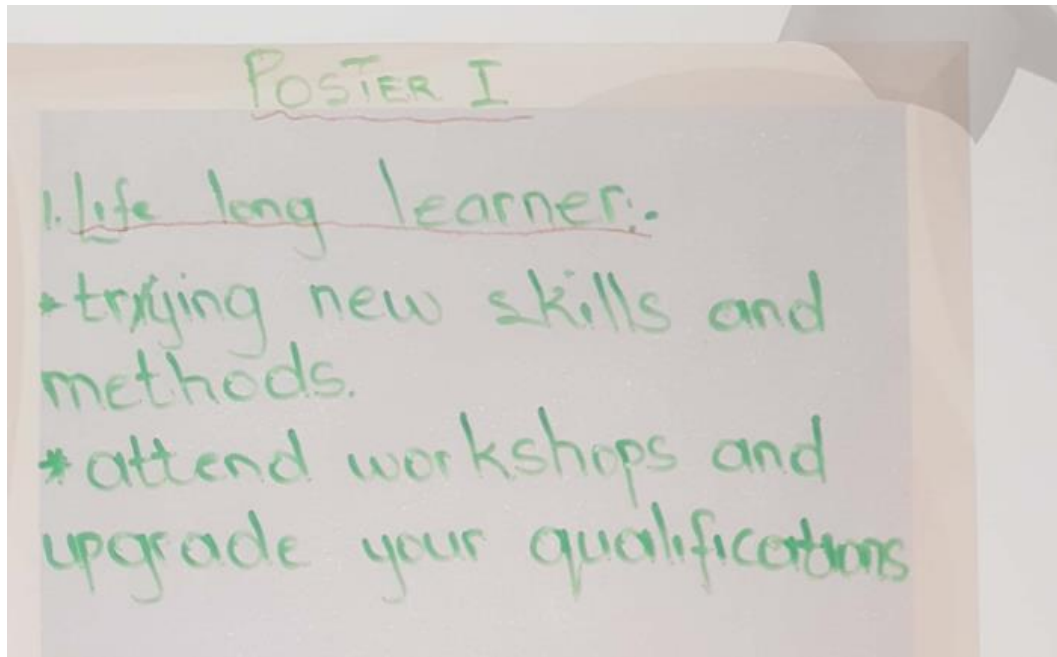 POSTER I
1. Life long learner:-
* trying new skills and
methods.
* attend workshops and
upgrade your qualifications